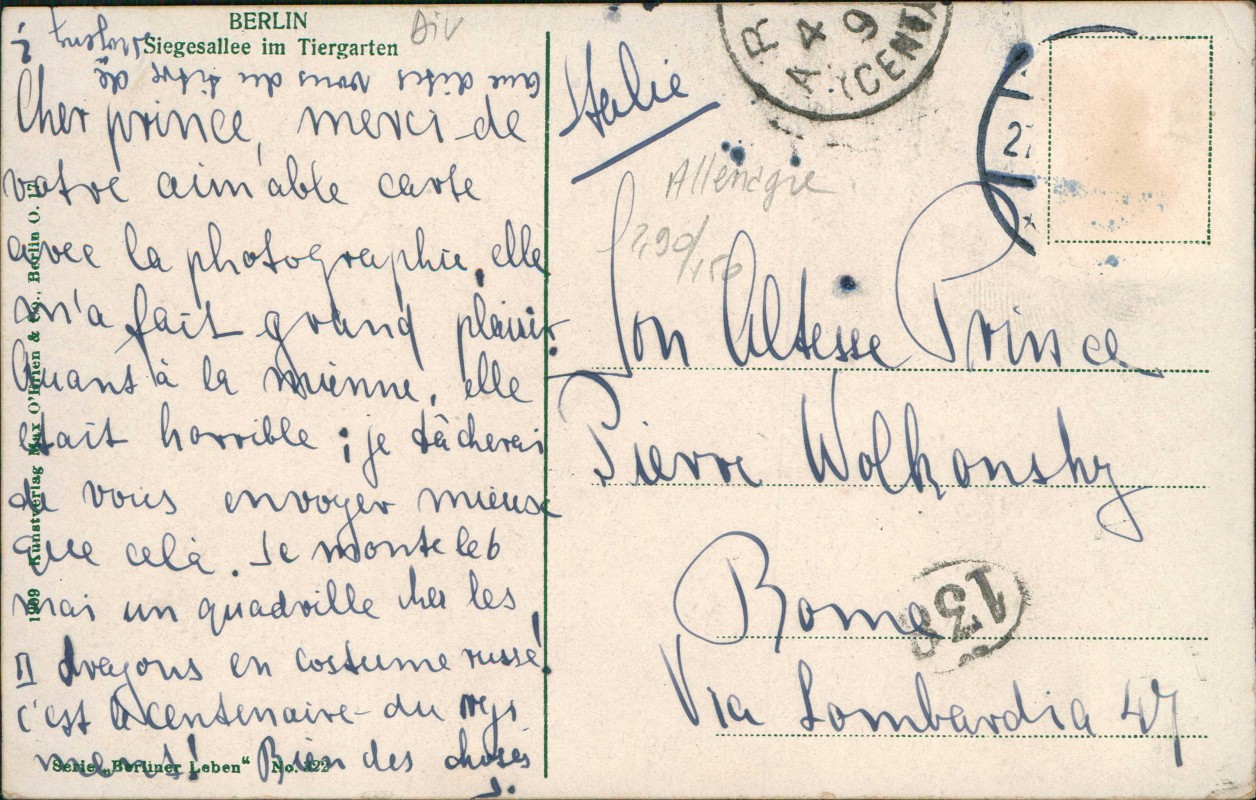 BERLIN
Siegesallee im Tiergarten
Div
que dites vous du titre de
Cher prince, merci de
votre aimable carte
avec la photographie, elle
m'a fait grand plaisir.
Quant à la mienne, elle
était horrible ; je tâcherai
de vous envoyer mieux
que cela. Je monte le 6
mai un quadrille chez les
II dragons en costume russe!
c'est le centenaire du regi
ment! Bien des choses
S.
Serie „Berliner Leben“ No. 422
1909 Kunstverlag Max O'Brien & Co., Berlin O. 17
Italie
Allemagne
290/150
Son Altesse Prince
Pierre Wolkonsky
Rome
Via Lombardia 47
138
27